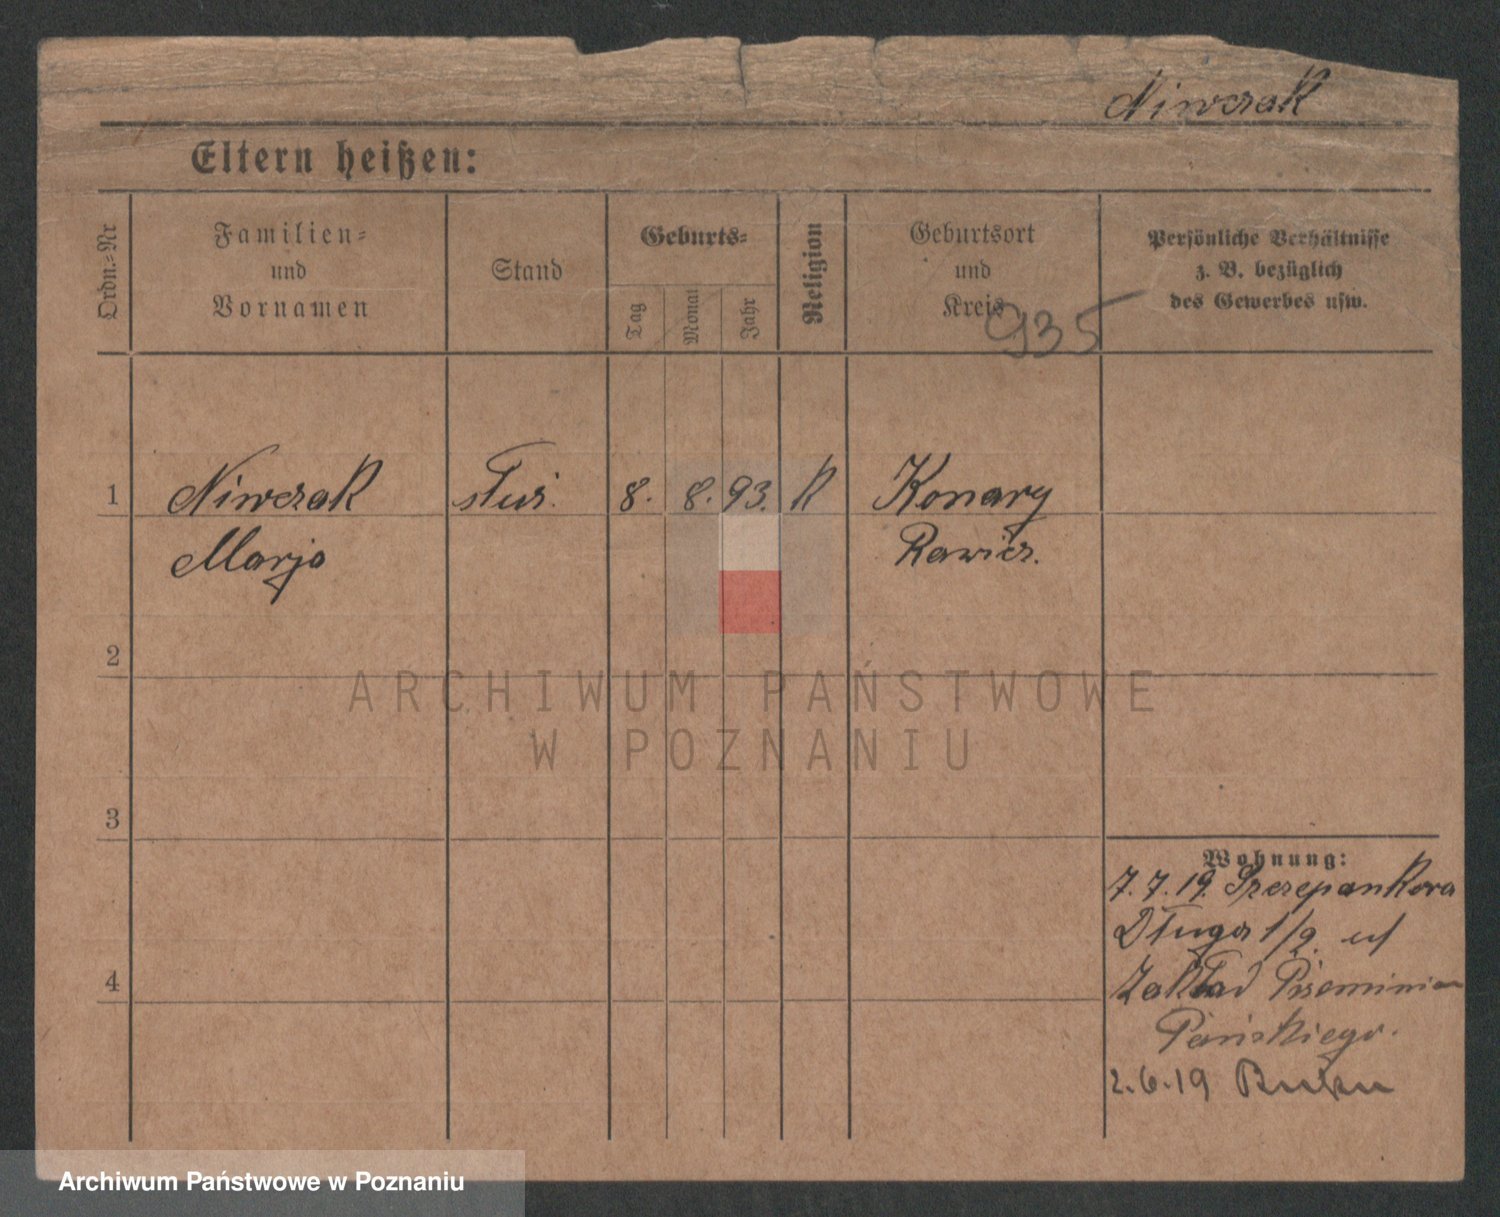 Niwczak
Eltern heißen:
Ordn.-Nr
Familien-
und
Vornamen
Stand
Geburts-
Tag
Monat
Jahr
Religion
Geburtsort
und
Kreis
Persönliche Verhältnisse
z. B. bezüglich
des Gewerbes usw.
935
1 Niwczak służ. 8. 8. 93. K Konary
Marja Rawicz.
2
ARCHIWUM PAŃSTWOWE
W POZNANIU
3
Wohnung:
7.7.19. Szczepankowa
Długa 1/9.
4
Zakład Przemienien
Pańskiego.
2.6.19 Buku
Archiwum Państwowe w Poznaniu